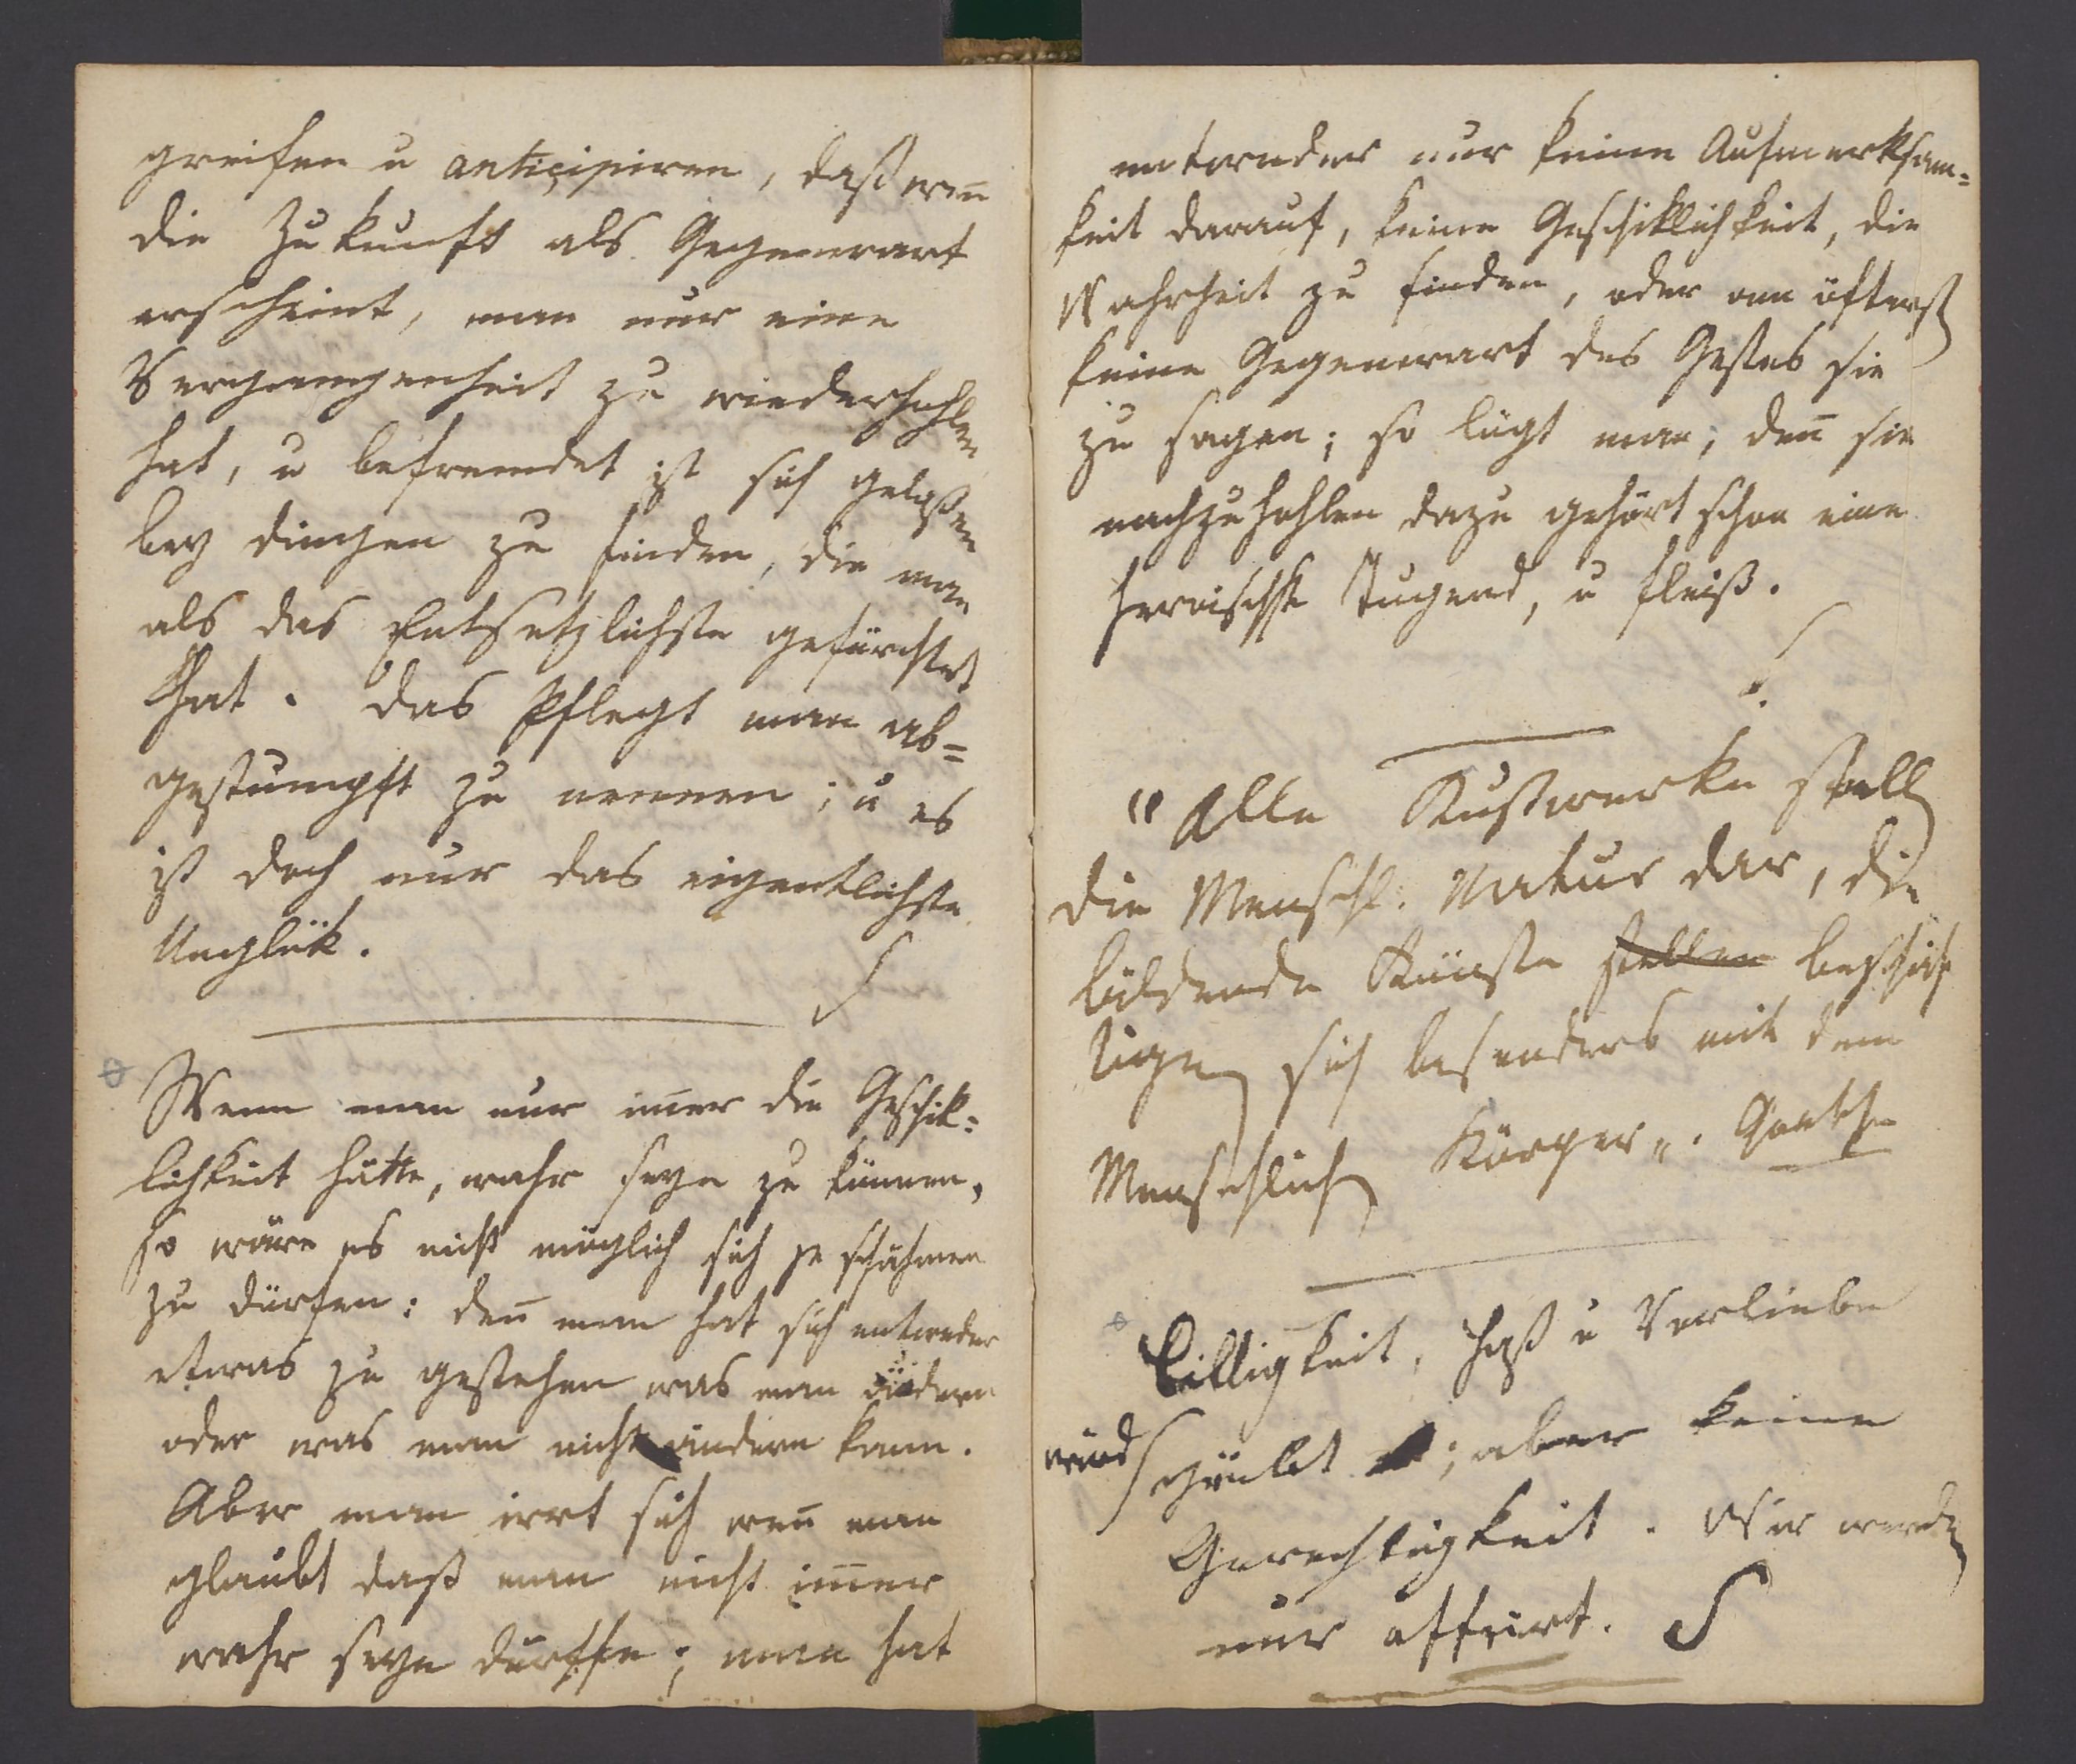 greifen u anticipiren, daß wen̄
die Zukunft als Gegenwart
erscheint, man nur eine
Vergangenheit zu wiederhohlen
hat, u befremdet ist sich gelaßen
bey dingen zu finden, die man
als das Entsetzlichste gefürchtet
hat. das pflegt man ab=
gestumpft zu nennen; u es
ist doch nur das eigentlichste
Unglük.
S
Wenn man nur im̄er die Geschik=
lichkeit hätte, wahr seyn zu können,
so wäre es nicht möglich sich je schähmen
zu dürfen: den̄ man hat sich entweder
etwas zu gestehen was man ändern
oder was man nicht ändern kann.
Aber man irrt sich wen̄ man
glaubt daß man nicht im̄er
wahr seyn dürffe; man hat
entweder nur keine Aufmerksam=
keit darauf, keine Geschiklichkeit, die
Wahrheit zu finden, oder am öfterst
keine Gegenwart des Gestes sie
zu sagen; so lügt man; den̄ sie
nachzuhohlen dazu gehört schon eine
heroischste Tugend, u fleiß.
S.
"Alle Kustwerke stellen
die Menschl: Natur dar, die
bildende Künste stellen beschäf
tigen sich besonders mit dem
Menschlichen Körper". Goethe
Billigkeit, Haß u Verliebe
wird geübt; aber keine
Gerechtigkeit. Wir werden
nur affiert. S